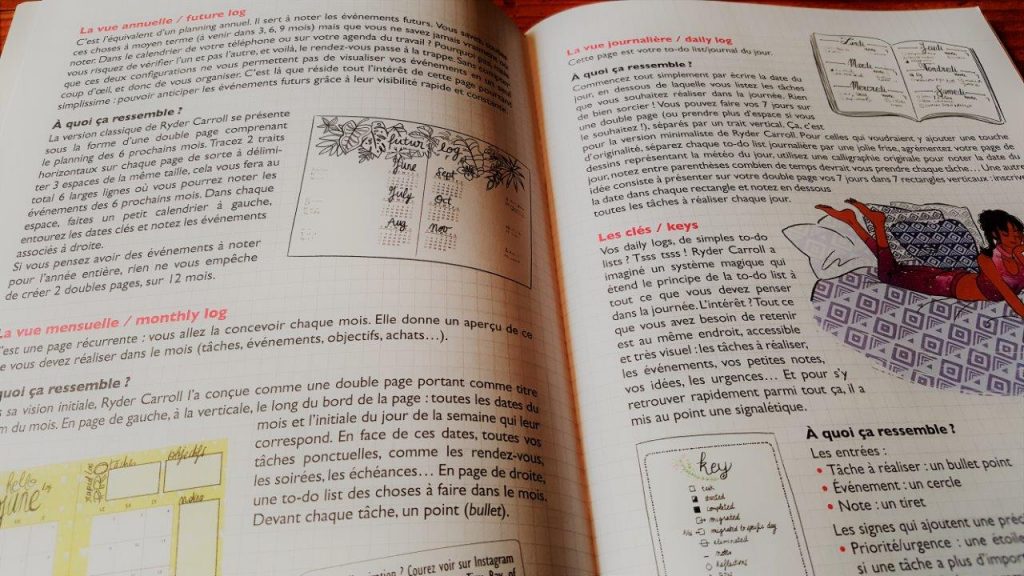 La vue annuelle / future log
C'est l'équivalent d'un planning annuel. Il sert à noter les événements futurs. Vous savez, toutes
ces choses à moyen terme (à venir dans 3, 6, 9 mois) mais que vous ne savez jamais vraiment où
noter. Dans le calendrier de votre téléphone ou sur votre agenda du travail ? Pourquoi pas, mais
vous risquez de vérifier l'un et pas l'autre, et voilà, le rendez-vous passe à la trappe. Sans compter
que ces deux configurations ne vous permettent pas de visualiser vos événements en un seul
coup d'œil, et donc de vous organiser. C'est là que réside tout l'intérêt de cette page pourtant
simplissime : pouvoir anticiper les événements futurs grâce à leur visibilité rapide et constante.
À quoi ça ressemble ?
La version classique de Ryder Carroll se présente
sous la forme d'une double page comprenant
le planning des 6 prochains mois. Tracez 2 traits
horizontaux sur chaque page de sorte à délimi-
ter 3 espaces de la même taille, cela vous fera au
total 6 larges lignes où vous pourrez noter les
événements des 6 prochains mois. Dans chaque
espace, faites un petit calendrier à gauche,
entourez les dates clés et notez les événements
associés à droite.
Si vous pensez avoir des événements à noter
pour l'année entière, rien ne vous empêche
de créer 2 doubles pages, sur 12 mois.
futur log
June
July
Aug
Sept
Oct
Nov
La vue mensuelle / monthly log
C'est une page récurrente : vous allez la concevoir chaque mois. Elle donne un aperçu de ce
que vous devez réaliser dans le mois (tâches, événements, objectifs, achats…).
quoi ça ressemble ?
s sa vision initiale, Ryder Carroll l'a conçue comme une double page portant comme titre
m du mois. En page de gauche, à la verticale, le long du bord de la page : toutes les dates du
mois et l'initiale du jour de la semaine qui leur
correspond. En face de ces dates, toutes vos
tâches ponctuelles, comme les rendez-vous,
les soirées, les échéances… En page de droite,
une to-do list des choses à faire dans le mois.
Devant chaque tâche, un point (bullet).
hello
June
tâches
objectifs
notes
? Courez voir sur Instagram
La vue journalière / daily log
Cette page est votre to-do list/journal du jour.
À quoi ça ressemble ?
Commencez tout simplement par écrire la date du
jour, en dessous de laquelle vous listez les tâches
que vous souhaitez réaliser dans la journée. Rien
de bien sorcier ! Vous pouvez faire vos 7 jours sur
une double page (ou prendre plus d'espace si vous
le souhaitez !), séparés par un trait vertical. Ça, c'est
pour la version minimaliste de Ryder Carroll. Pour celles qui voudraient y ajouter une touche
d'originalité, séparez chaque to-do list journalière par une jolie frise, agrémentez votre page de
dessins représentant la météo du jour, utilisez une calligraphie originale pour noter la date du
jour, notez entre parenthèses combien de temps devrait vous prendre chaque tâche… Une autre
idée consiste à présenter sur votre double page vos 7 jours dans 7 rectangles verticaux : inscrivez
la date dans chaque rectangle et notez en dessous
toutes les tâches à réaliser chaque jour.
Lundi
Mardi
Mercredi
Jeudi
Vendredi
Samedi
Les clés / keys
Vos daily logs, de simples to-do
lists ? Tsss tsss ! Ryder Carroll a
imaginé un système magique qui
étend le principe de la to-do list à
tout ce que vous devez penser
dans la journée. L'intérêt ? Tout ce
que vous avez besoin de retenir
est au même endroit, accessible
et très visuel : les tâches à réaliser,
les événements, vos petites notes,
vos idées, les urgences… Et pour s'y
retrouver rapidement parmi tout ça, il a
mis au point une signalétique.
key
task
started
completed
migrated
migrated to specific day
eliminated
note
reflections
À quoi ça ressemble ?
Les entrées :
• Tâche à réaliser : un bullet point
• Événement : un cercle
• Note : un tiret
Les signes qui ajoutent une préc
• Priorité/urgence : une étoile
si une tâche a plus d'impor